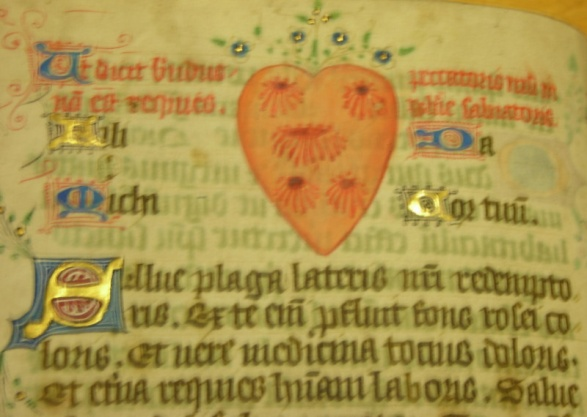 Ut dicit
nā est requies. salvatoris.
Fili Da
Michi Cor tuū.
Salue plaga lateris nr̄i redempto
ris. Ex te em̄ pfluit fons rosei co
loris. Et uere medicina tocius doloris.
Et etiā requies hūiani laboris. Salue